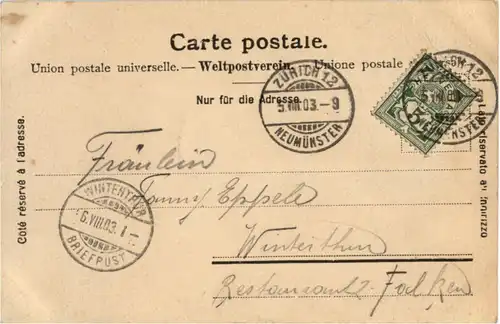 Carte postale.
Union postale universelle. — Weltpostverein. — Unione postale
Nur für die Adresse.
Côté réservé à l'adresse.
ZÜRICH 12
5.VIII.03.–9
NEUMÜNSTER
Fräulein
Fanny Eppele
Winterthur
Restaurant z. Falken
WINTERTHUR
6.VIII.03. 1–
BRIEFPOST